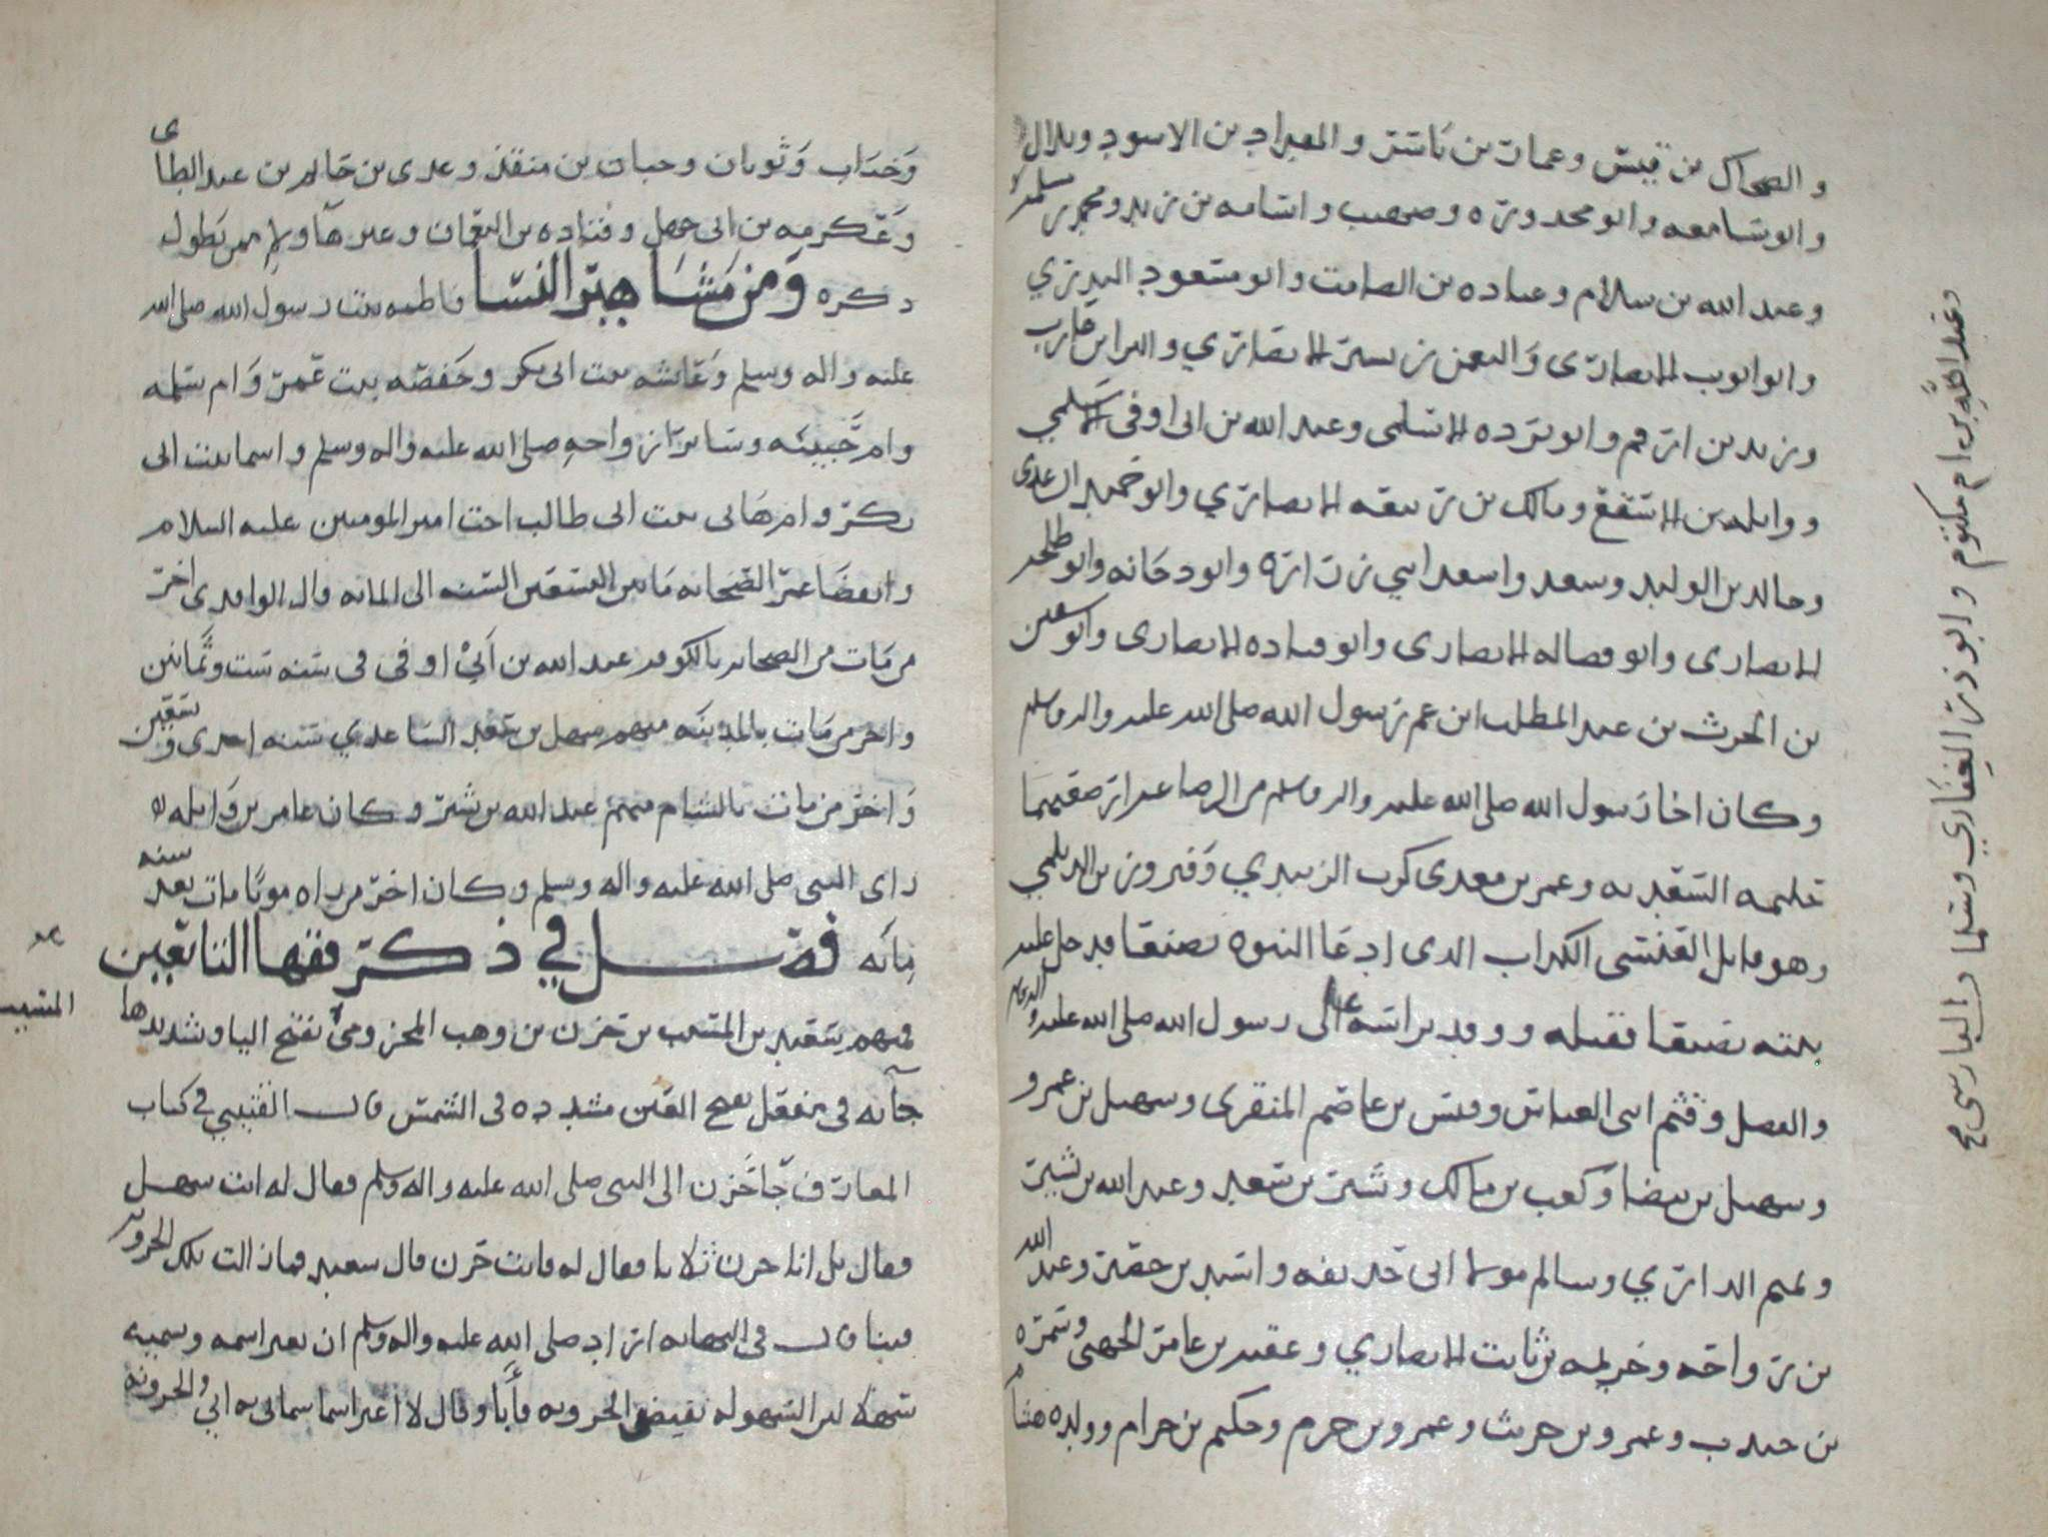 والضحاك بن قيس وعمار بن ياسر والمقداد بن الاسود وبلال
وابو سامعه وابو محذوره وصهيب واسامه بن زيد ومحمد بن مسلمة
وعبد الله بن سلام وعباده بن الصامت وابو مسعود البدري
وابو ايوب الانصاري والنعمن بن بسير الانصاري والبرا بن عازب
وزيد بن ارقم وابو برده الاسلمي وعبد الله بن ابي اوفى الاسلمي
وواثله بن الاسقع ومالك بن ربيعه الانصاري وابو حميد الساعدي
وخالد بن الوليد وسعد واسعد ابني زرارة وابو دجانه وابو طلحه
الانصاري وابو فضاله الانصاري وابو قتاده الانصاري وابو سفين
بن الحرث بن عبد المطلب ابن عم رسول الله صلى الله عليه واله وسلم
وكان اخا رسول الله صلى الله عليه واله وسلم من الرضاعه ارضعتهما
حليمه السعديه وعمر بن معدي كرب الزبيدي وفيروز بن الديلمي
وهو قاتل العنسي الكذاب الذي ادعا النبوه بصنعا فدخل عليه
بيته بصنعا فقتله ووفد براسه الى رسول الله صلى الله عليه واله وسلم
والفضل وقثم ابني العباس وقيس بن عاصم المنقري وسهيل بن عمرو
وسهيل بن بيضا وكعب بن مالك وبشير بن سعد وعبد الله بن بسر
وتميم الداري وسالم مولا ابي حذيفه واسيد بن حضير وعبد الله
بن رواحه وخزيمه بن ثابت الانصاري وعقبه بن عامر الجهني وسمرة
بن جندب وعمرو بن حريث وعمرو بن حزم وحكيم بن حزام وولده هشام
وعبد الله بن ام مكتوم وابو ذر الغفاري وسلمان الفارسي صح
وخباب وثوبان وحبان بن منقذ وعدي بن حاتم بن عبد الطاي
وعكرمه بن ابي جهل وقتاده بن النعمان وغيرها ولا ممن يطول
ذكره ومن مشاهير النسا فاطمه بنت رسول الله صلى الله
عليه واله وسلم وعائشه بنت ابي بكر وحفصه بنت عمر وام سلمه
وام حبيبه وساير ازواجه صلى الله عليه واله وسلم واسما بنت ابي
بكر وام هاني بنت ابي طالب اخت امير المومنين عليه السلام
وانقضا عصر الصحابه ما بين التسعين السنه الى المائه قال الواقدي اخر
من مات من الصحابه بالكوفه عبد الله بن ابي اوفى في سنه ست وثمانين
واخر من مات بالمدينه منهم سهل بن سعد الساعدي سنه احدى وتسعين
واخر من مات بالشام منهم عبد الله بن بسر وكان عامر بن واثله
راى النبي صلى الله عليه واله وسلم وكان اخر من راه موتا مات بعد سنه
مائه فصل في ذكر فقها التابعين
فمنهم سعيد بن المسيب بن حزن بن وهب المخزومي بفتح اليا وشديدها
المسيب
جآ به في مفعل بفتح العين مشدده في الشمس قال القتيبي في كتاب
المعارف جآ حزن الى النبي صلى الله عليه واله وسلم فقال له انت سهل
فقال بل انا حزن ثلاثا فقال له فانت حزن قال سعيد فمازالت تلك الحزونه
فينا قال في النهايه اراد صلى الله عليه واله وسلم ان يغير اسمه وسميه
سهلا لان السهوله نقيض الحزونه فأبا وقال لا اغير اسما سماني به ابي والحزونه